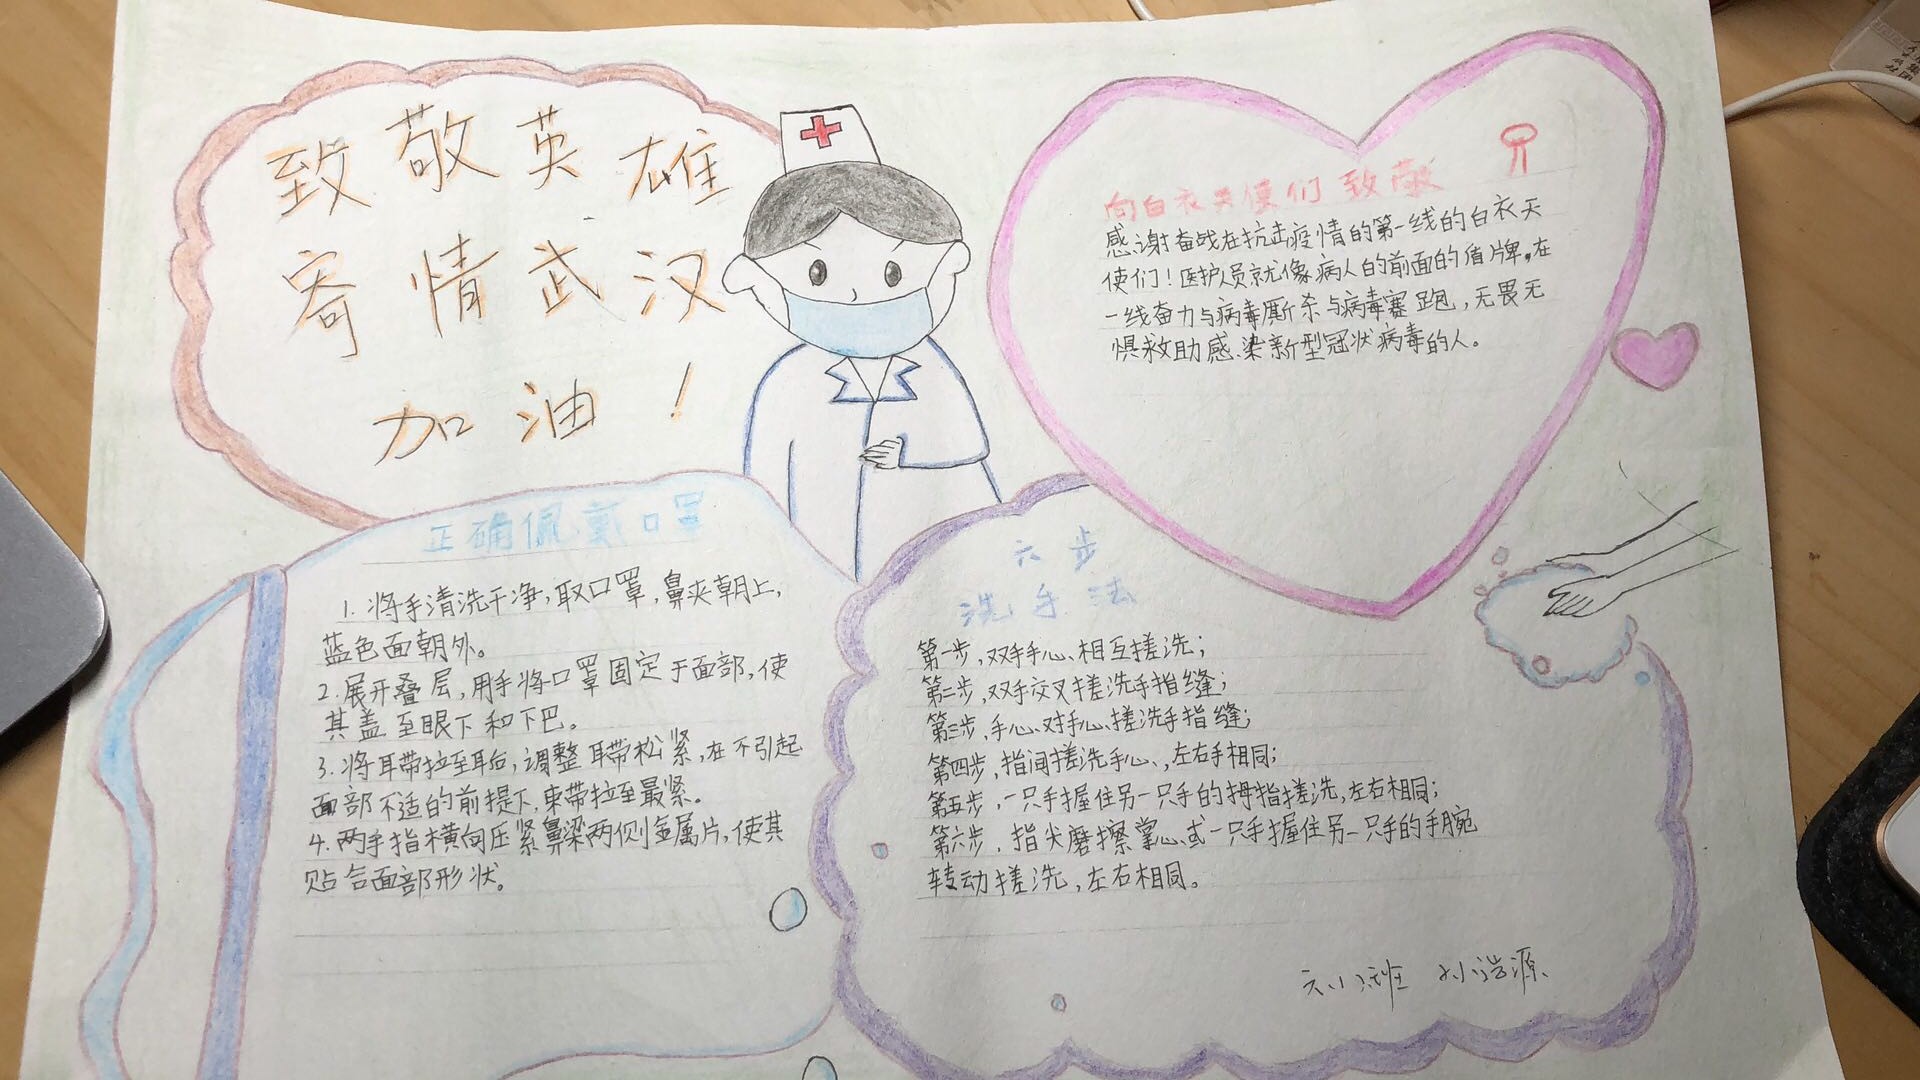 致敬英雄
寄情武汉
加油！
向白衣天使们致敬
感谢奋战在抗击疫情的第一线的白衣天
使们！医护人员就像病人的前面的盾牌，在
一线奋力与病毒厮杀与病毒赛跑，无畏无
惧救助感染新型冠状病毒的人。
正确佩戴口罩
1. 将手清洗干净，取口罩，鼻夹朝上，
蓝色面朝外。
2. 展开叠层，用手将口罩固定于面部，使
其盖至眼下和下巴。
3. 将耳带拉至耳后，调整耳带松紧，在不引起
面部不适的前提下，束带拉至最紧。
4. 两手指横向压紧鼻梁两侧金属片，使其
贴合面部形状。
六步
洗手法
第一步，双手手心相互搓洗；
第二步，双手交叉搓洗手指缝；
第三步，手心对手心搓洗手指缝；
第四步，指间搓洗手心，左右手相同；
第五步，一只手握住另一只手的拇指搓洗，左右相同；
第六步，指尖磨擦掌心或一只手握住另一只手的手腕
转动搓洗，左右相同。